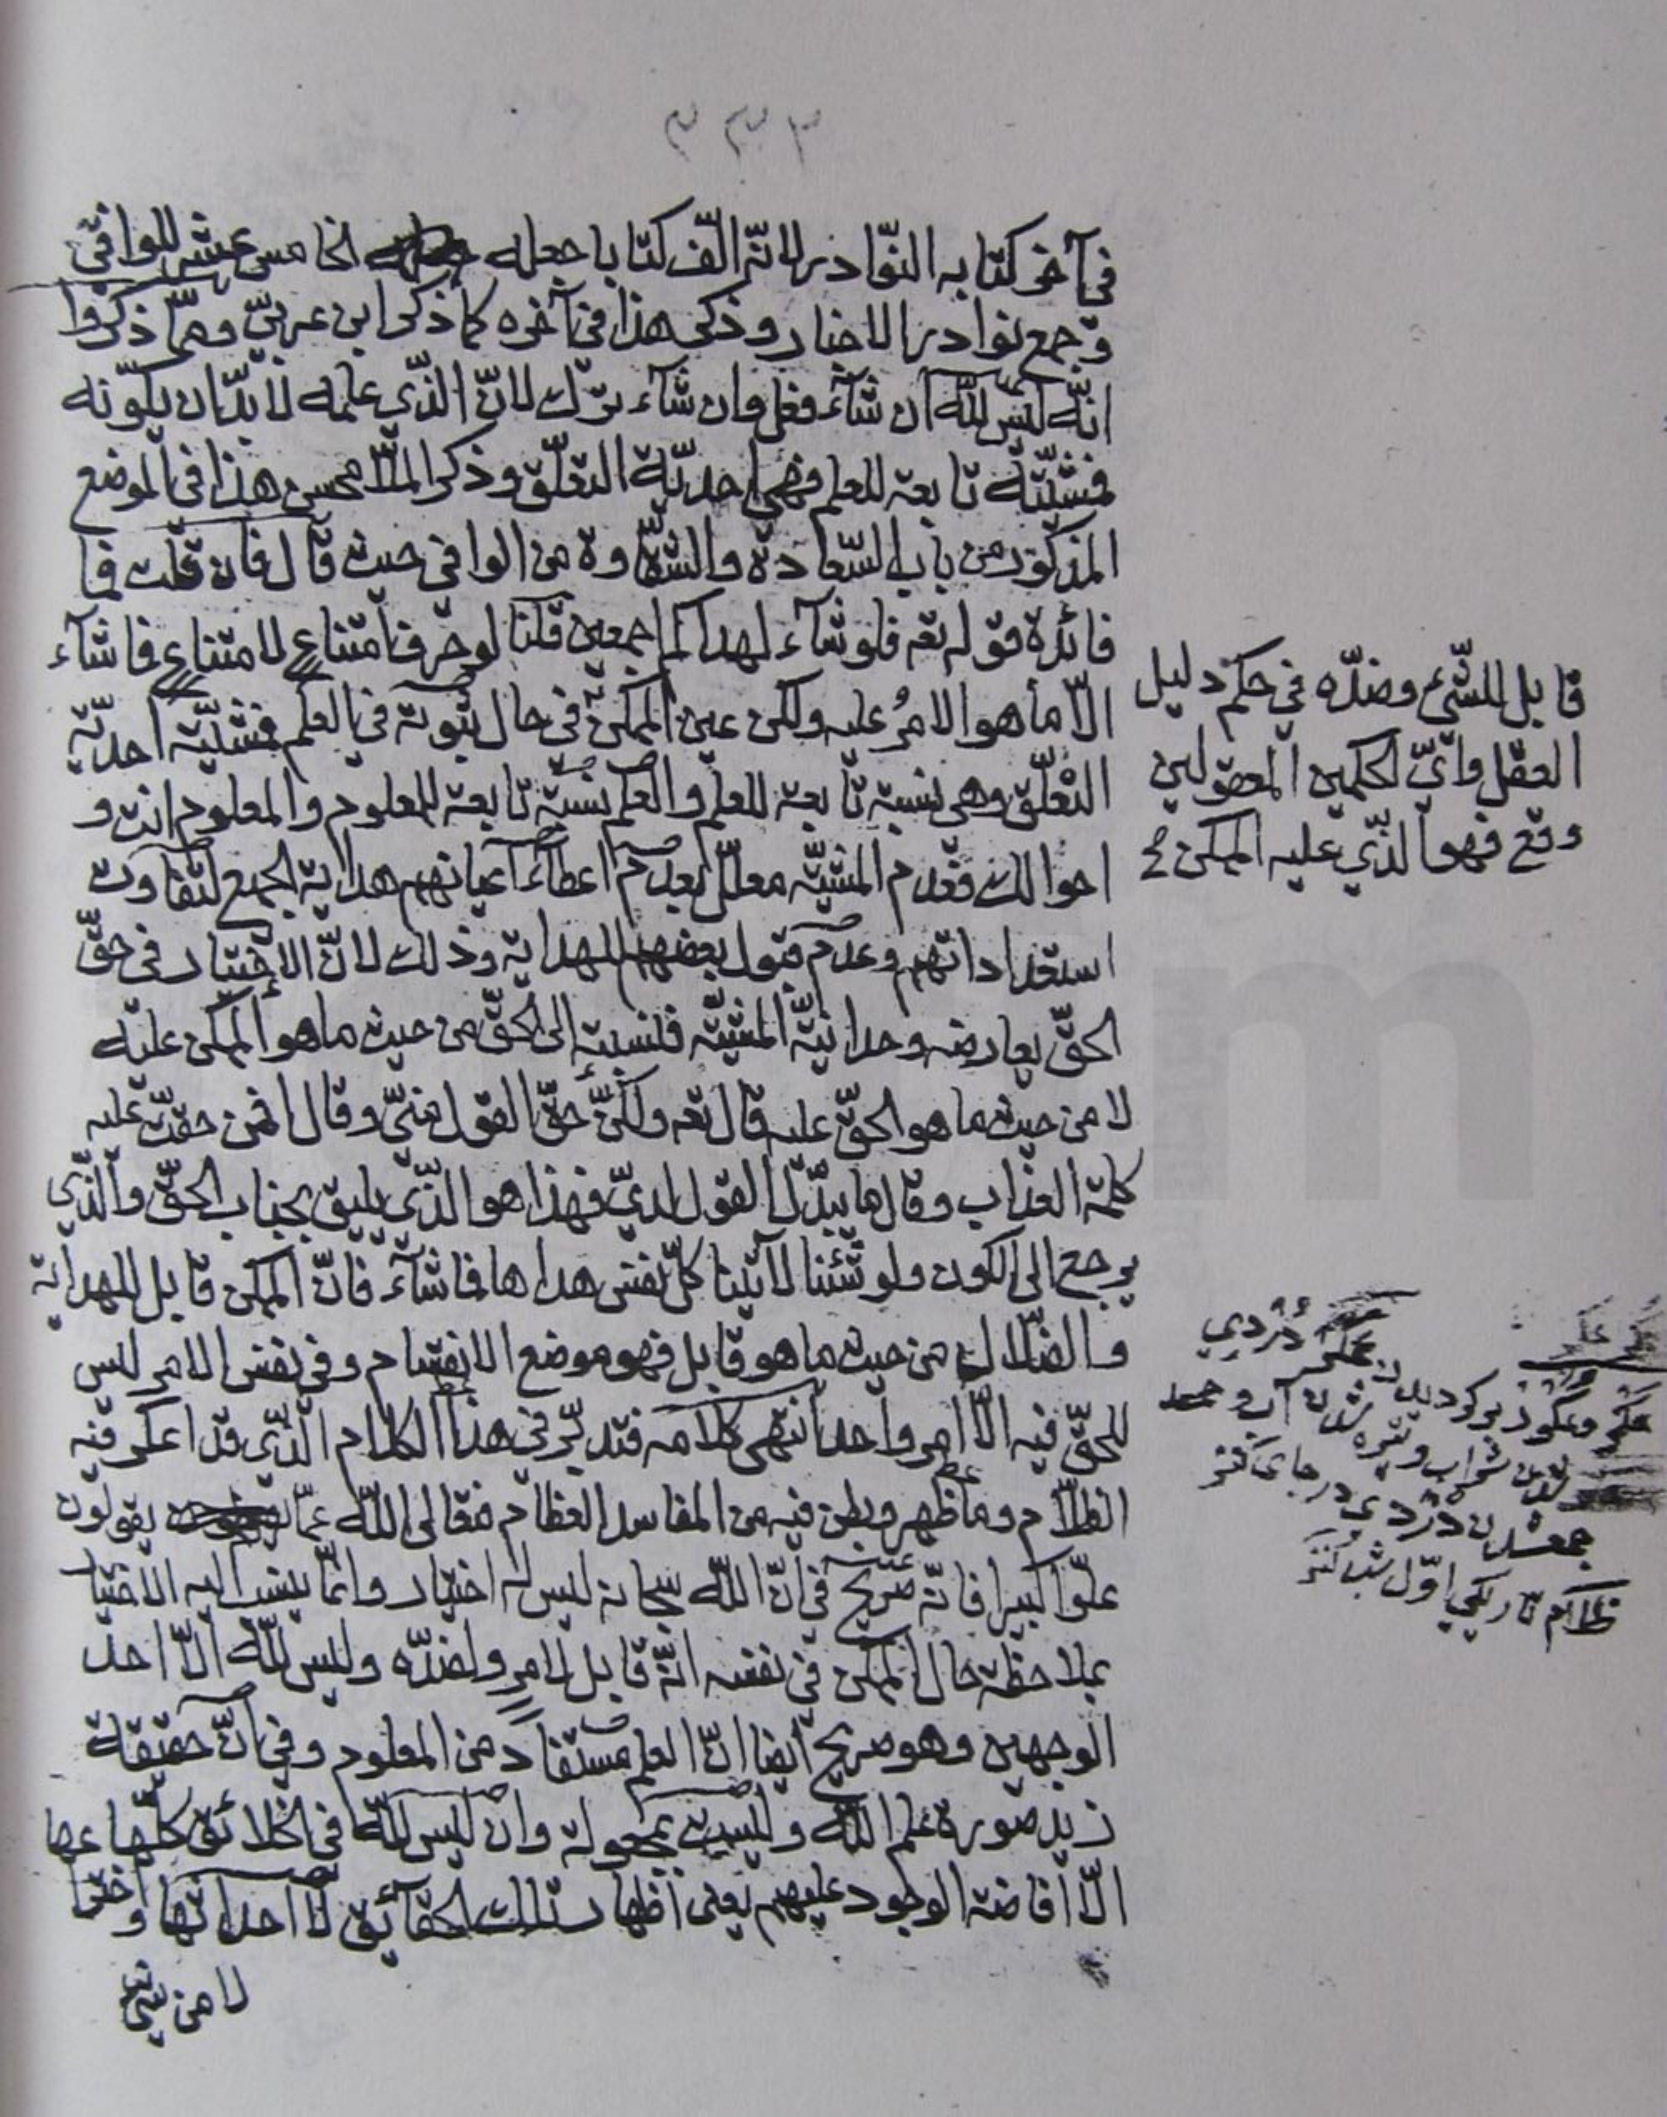 ٣٣٣
في آخر كتابه النوادر لانّه الّف كتابا جعله الخامس عشر للوافي
و جمع نوادر الاخبار و ذكر هذا في آخره كما ذكر ابن عربيّ و ممّا ذكروا
انّه ليس للّه ان شآء فعل وان شآء ترك لانّ الذّي علمه لا بدّ ان يكوّنه
فمشيّته تابعة للعلم فهي احديّة التعلّق و ذكر الملّا محسن هذا في الموضع
المذكور من باب السّعادة والشّقاوة من الوافي حيث قال فان قلت فما
فائدة قوله تعه فلو شآء لهداكم اجمعين قلنا لو حرف امتناع لامتناع فما شآء
الّا ما هو الامرُ عليه ولكن عين الممكن في حال ثبوته في العلم فمشيّته احديّة
التعلّق وهي نسبة تابعة للعلم والعلم نسبة تابعة للمعلوم والمعلوم انت و
احوالك فعدم المشيّه معلّل بعدم اعطآء اعيانهم هداية الجميع لتفاوت
استعداداتهم وعدم قبول بعضهم للهداية وذلك لانّ الاختيار في حقّ
الحقّ يعارضه وحدانيّة المشيّه فنسبته الى الحقّ من حيث ما هو الممكن عليه
لا من حيث ما هو الحقّ عليه قال تعه ولكن حقّ القول منّي وقال افمن حقّت عليه
كلمة العذاب وقال ما يبدّل القول لديّ فهذا هو الذّي يليق بجناب الحقّ والذّي
يرجع الى الكون ولو شئنا لآتينا كلّ نفس هداها فما شآء فانّ الممكن قابل للهداية
والضّلال من حيث ما هو قابل فهو موضع الانقسام وفي نفس الامر ليس
للحقّ فيه الّا امر واحد انتهى كلامه فتدبّر في هذا الكلام الّذي قد اعتكر فيه
الظلام وما ظهر وبطن فيه من المفاسد العظام فتعالى اللّه عمّا يقولون
علوّا كبيرا فانّه صريح في انّ اللّه سبحانه ليس له اختيار وانّما ينسب اليه الاختيار
بملاحظة حال الممكن في نفسه انّه قابل لامر ولضدّه وليس للّه الّا احد
الوجهين وهو صريح ايضا انّ العلم مستفاد من المعلوم وفي انّ حقيقة
زيد صورة علم اللّه وليست بمجعولة وان ليس للّه في الخلائق كلّها
الّا افاضة الوجود عليهم يعني اظهار تلك الحقآئق لا احداثها و
لا من شيء
قابل للشّيء وضدّه في حكم دليل
العقل وايّ الحكمين المعقولين
وقع فهو الذّي عليه الممكن
دُرْدي
شراب وتيره شدن آب و
دُرْدي در جاى
ظلام تاريكي اوّل شب كنز